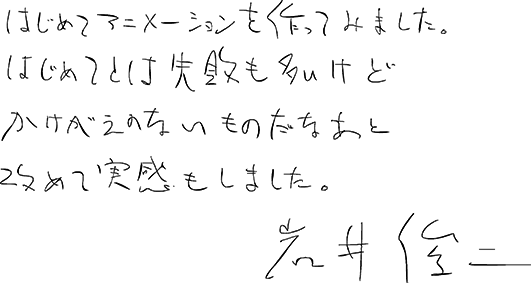 はじめてアニメーションを作ってみました。
はじめてとは失敗も多いけど
かけがえのないものだなあと
改めて実感もしました。
岩井俊二